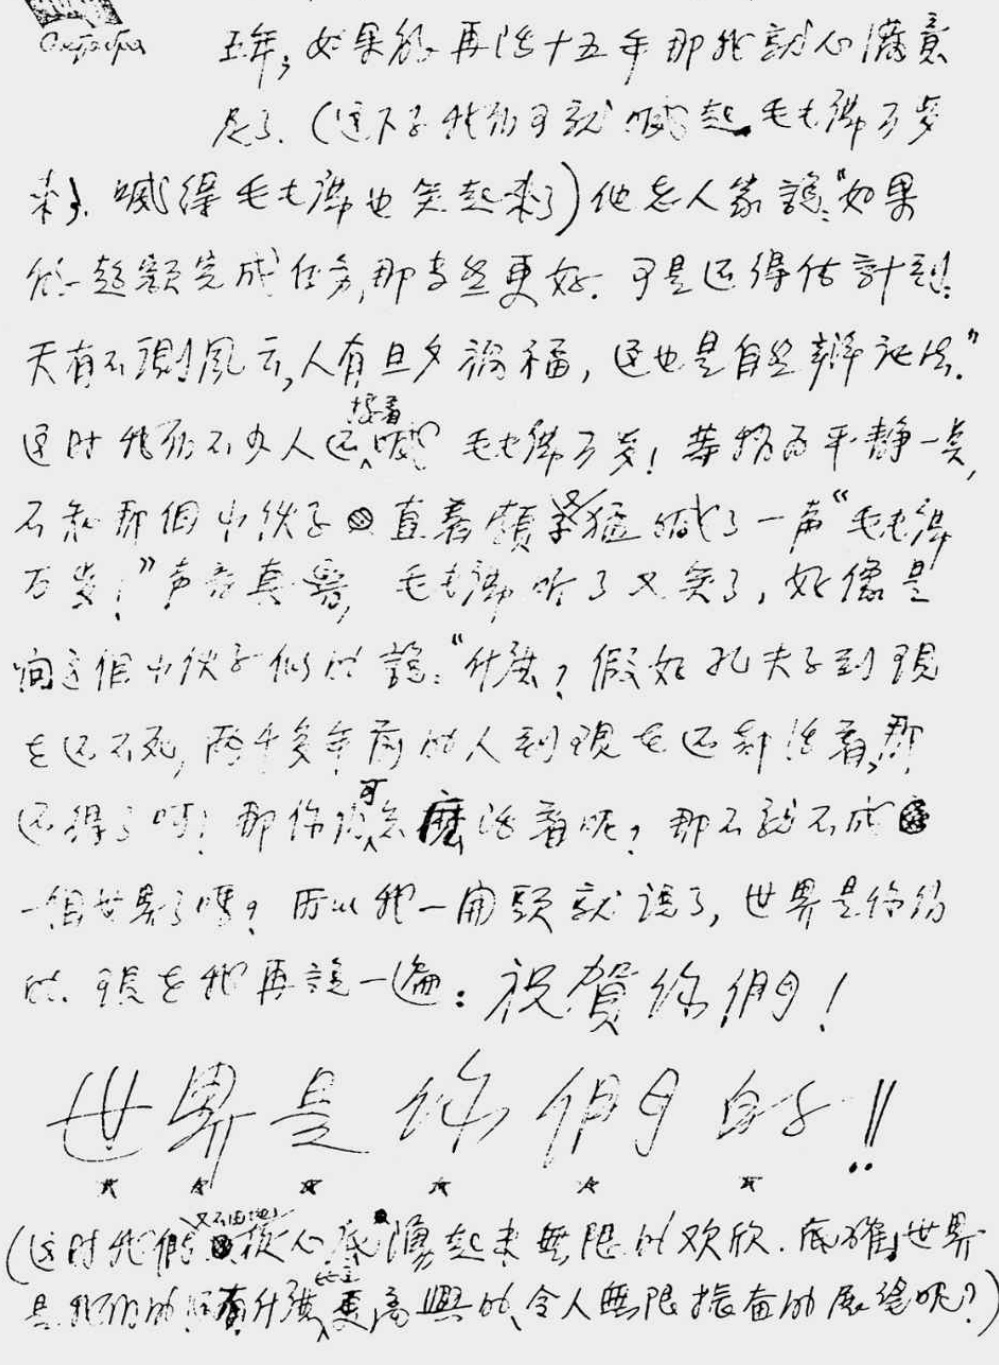 五年，如果能再活十五年那我就心滿意
足了.（這下子我们可就喊起毛主席万岁
来了. 喊得毛主席也笑起来了）他老人家說：“如果
能超額完成任务，那当然更好. 可是还得估計到：
天有不測风云，人有旦夕祸福，这也是自然辩证法.”
这时我们不少人还接着喊 毛主席万岁！等稍为平静一点，
不知那個小伙子直着頸猛喊了一声“毛主席
万岁！”声音真響，毛主席听了又笑了，好像是
向这個小伙子似的說：“什麼？假如孔夫子到現
在还不死，两千多年前的人到現在还都活着，那
还得了呵！那你們可怎麼活着呢？那不就不成
一個世界了嗎？所以我一開頭就說了，世界是你们
的. 現在我再說一遍：祝賀你們！
世界是你們的!!
（这时我們又不由地從心底湧起来無限的欢欣. 底確，世界
是我们的还有什麼比这更高興的、令人無限振奋的展望呢？）